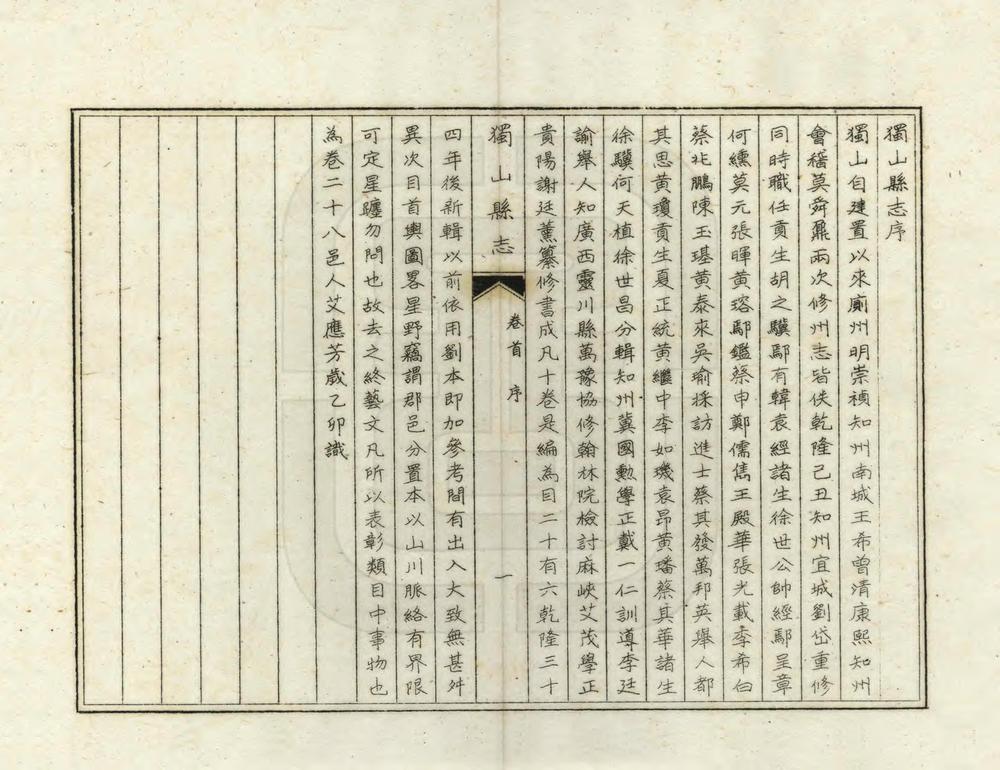 獨山縣志序
獨山自建置以來廟州明崇禎知州南城王希曾清康熙知州
會稽莫舜鼐兩次修州志皆佚乾隆己丑知州宜城劉岱重修
同時職任貢生胡之驥鄢有韓袁經諸生徐世公帥經鄢呈章
何繻莫元張暉黃瑢鄢鑑蔡申鄭儒雋王殿華張光載李希白
蔡北鵬陳玉璂黃泰來吳瑜採訪進士蔡其發萬邦英舉人都
其思黃瓊貢生夏正統黃繼中李如璣袁昂黃璠蔡其華諸生
徐驥何天植徐世昌分輯知州冀國勲學正戴一仁訓導李廷
諭舉人知廣西靈川縣萬豫協修翰林院檢討麻峽艾茂學正
貴陽謝廷薰纂修書成凡十卷是編為目二十有六乾隆三十
獨山縣志
卷首
序
一
四年後新輯以前依用劉本即加參考間有出入大致無甚舛
異次目首輿圖畧星野竊謂郡邑分置本以山川脈絡有界限
可定星躔勿問也故去之終藝文凡所以表彰類目中事物也
為卷二十八邑人艾應芳歲乙卯識